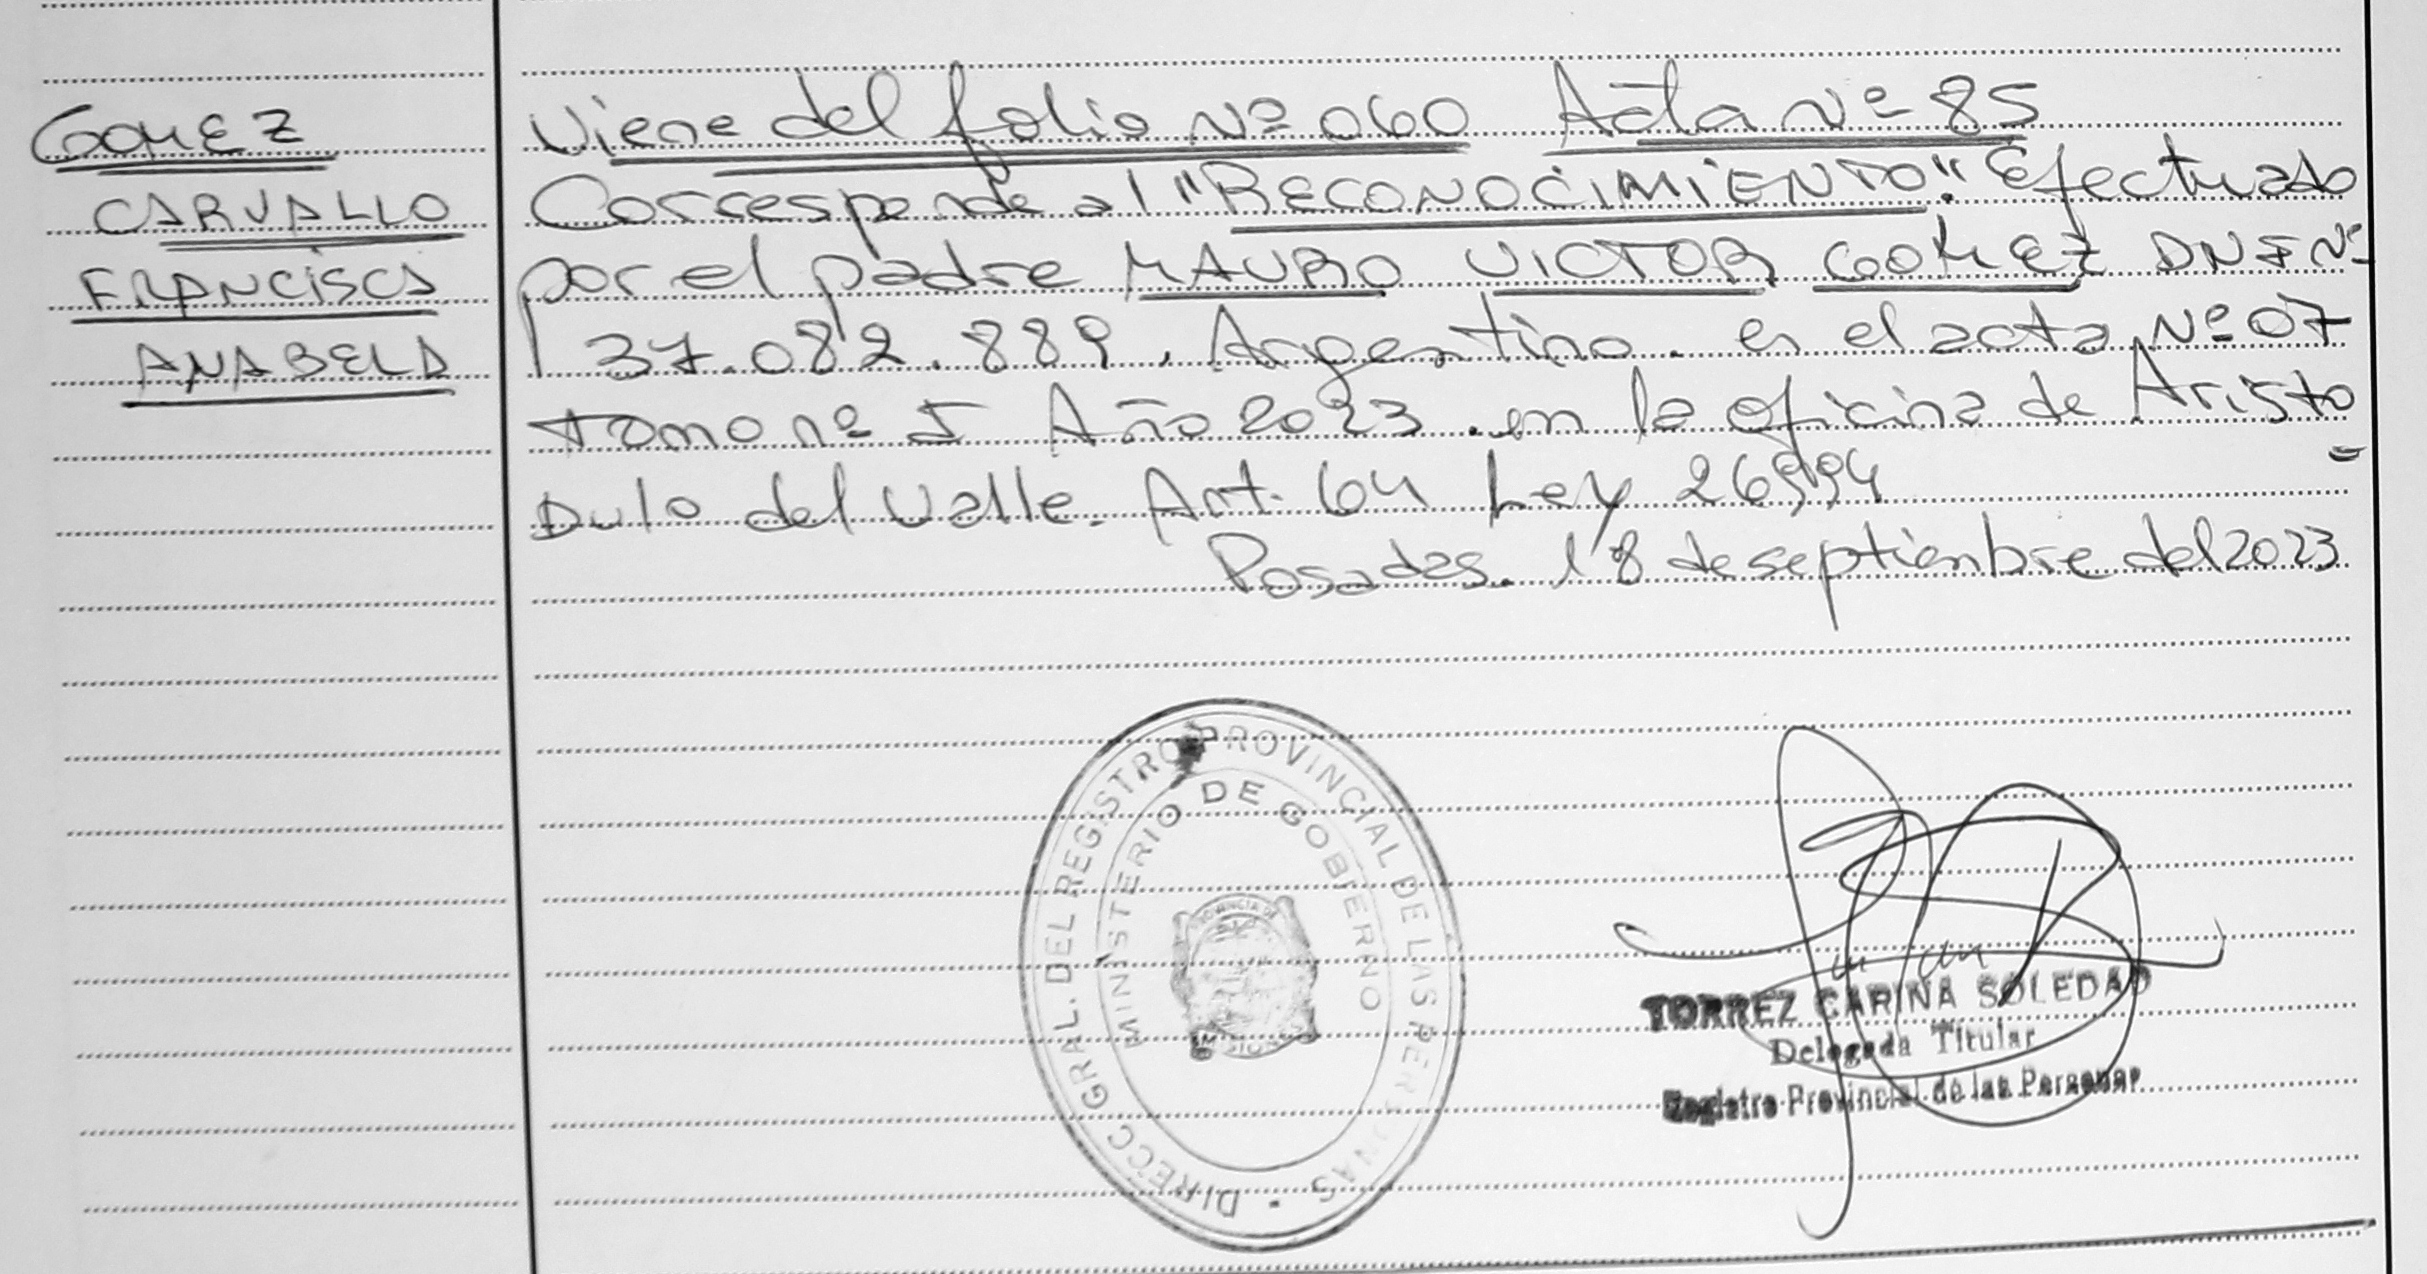 GOMEZ
CARVALLO
FRANCISCA
ANABELA
Viene del folio Nº 060 Acta Nº 85
Corresponde al "RECONOCIMIENTO". Efectuado
por el padre MAURO VICTOR GOMEZ DNI Nº
37.082.889, Argentino. en el acta Nº 07
Tomo nº I Año 2023. en la oficina de Aristo
=
Dulo del Valle. Art. 64 Ley 26994
Posadas. 18 de septienbre del 2023
DIRECC GRAL. DEL REGISTRO PROVINCIAL DE LAS PERSONAS
MINISTERIO DE GOBIERNO
PROVINCIA DE
MISIONES
TORREZ CARINA SOLEDAD
Delegada Titular
Registro Provincial de las Personas